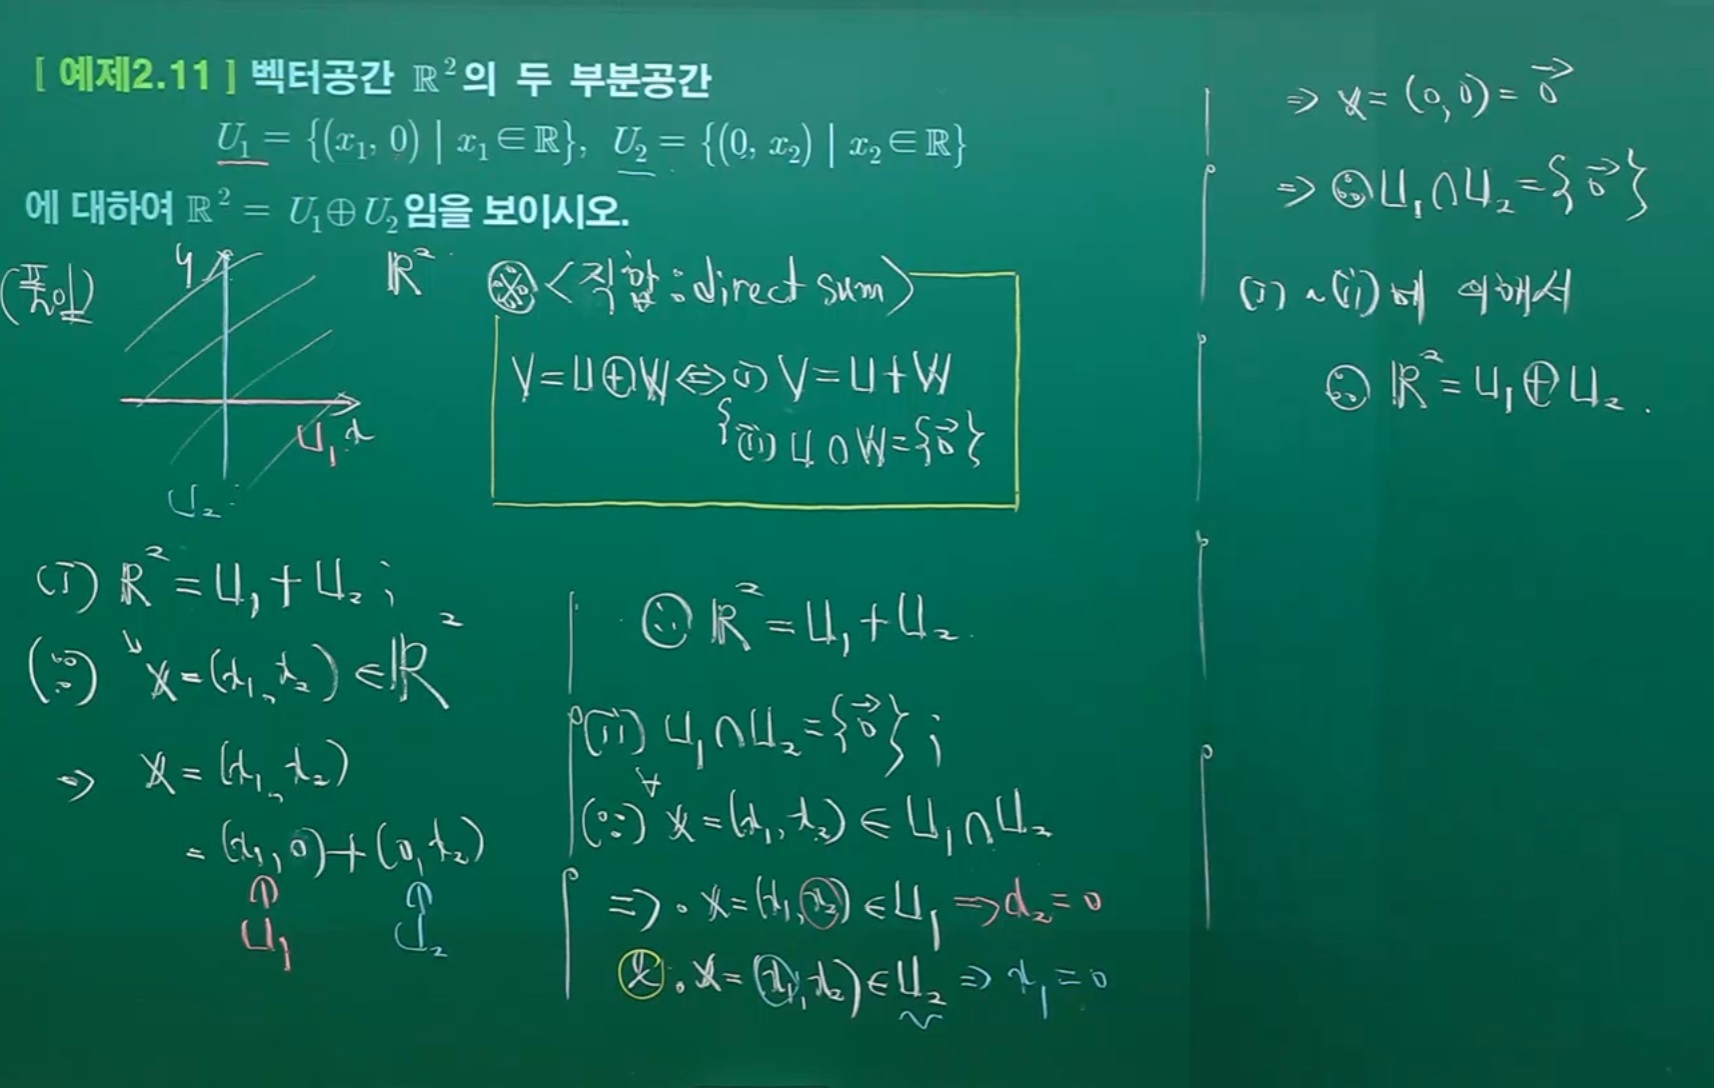 [ 예제2.11 ] 벡터공간 ℝ²의 두 부분공간
U₁ = {(x₁, 0) | x₁∈ℝ}, U₂ = {(0, x₂) | x₂∈ℝ}
에 대하여 ℝ² = U₁⊕U₂임을 보이시오.
(풀이)
y
ℝ²
U₁ x
U₂
※ <직합 : direct sum>
V=U⊕W ⇔ (i) V=U+W
(ii) U∩W={0⃗}
(i) ℝ²=U₁+U₂ ;
(∵) ∀x=(x₁, x₂)∈ℝ²
⇒ x=(x₁, x₂)
=(x₁, 0)+(0, x₂)
⇑ ⇑
U₁ U₂
∴ ℝ²=U₁+U₂.
(ii) U₁∩U₂={0⃗} ;
(∵) ∀x=(x₁, x₂)∈U₁∩U₂
⇒ · x=(x₁, x₂)∈U₁ ⇒ x₂=0
& · x=(x₁, x₂)∈U₂ ⇒ x₁=0
⇒ x=(0, 0)=0⃗
⇒ ∴ U₁∩U₂={0⃗}
(i) ~ (ii)에 의해서
∴ ℝ²=U₁⊕U₂.